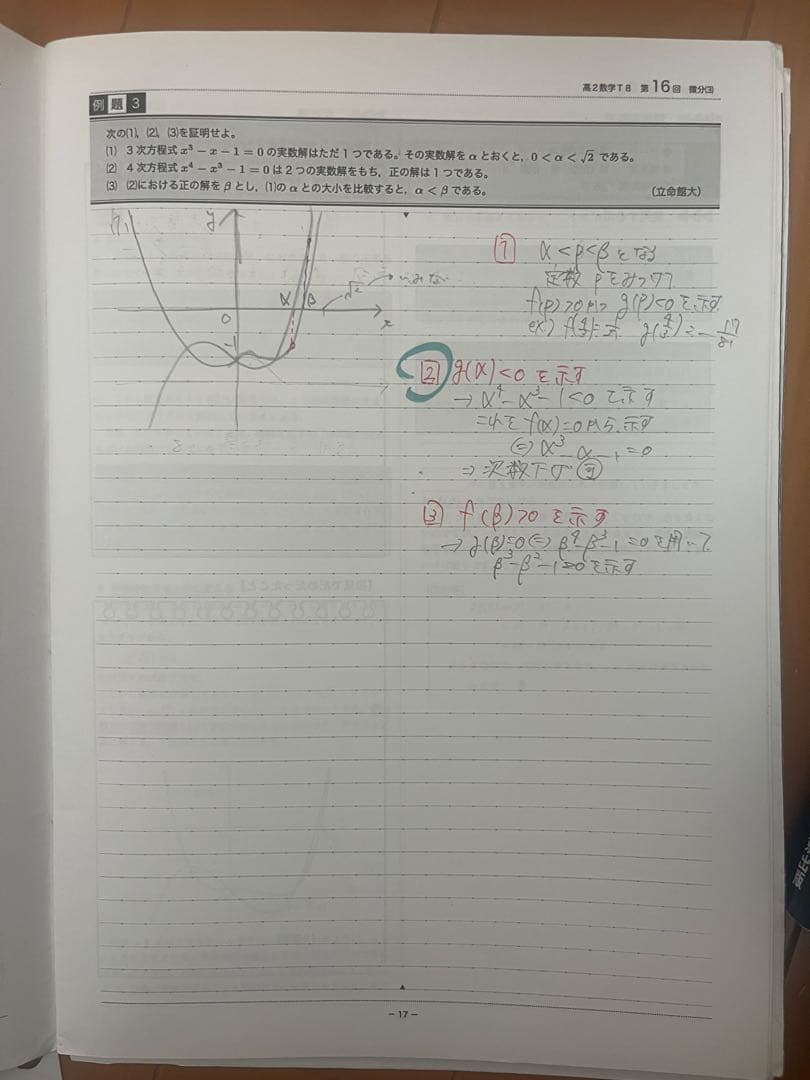 高2数学T8 第16回 微分(3)
例題3
次の(1), (2), (3)を証明せよ。
(1) 3次方程式 x³－x－1＝0 の実数解はただ1つである。その実数解をαとおくと，0＜α＜√2 である。
(2) 4次方程式 x⁴－x³－1＝0 は2つの実数解をもち，正の解は1つである。
(3) (2)における正の解をβとし，(1)のαとの大小を比較すると，α＜βである。
(立命館大)
y
α β √2
O
x
-1
1 α<p<βとなる
定数 pをみつけて
f(p)>0かつ g(p)<0を示す
ex) g(4/3)=-17/81
2 g(α)<0を示す
→ α⁴-α³-1<0を示す
これを f(α)=0から示す
⇔ α³-α-1=0
⇒ 次数下げ 可
3 f(β)>0を示す
→ g(β)=0⇔β⁴-β³-1=0を用いて
を示す
-17-